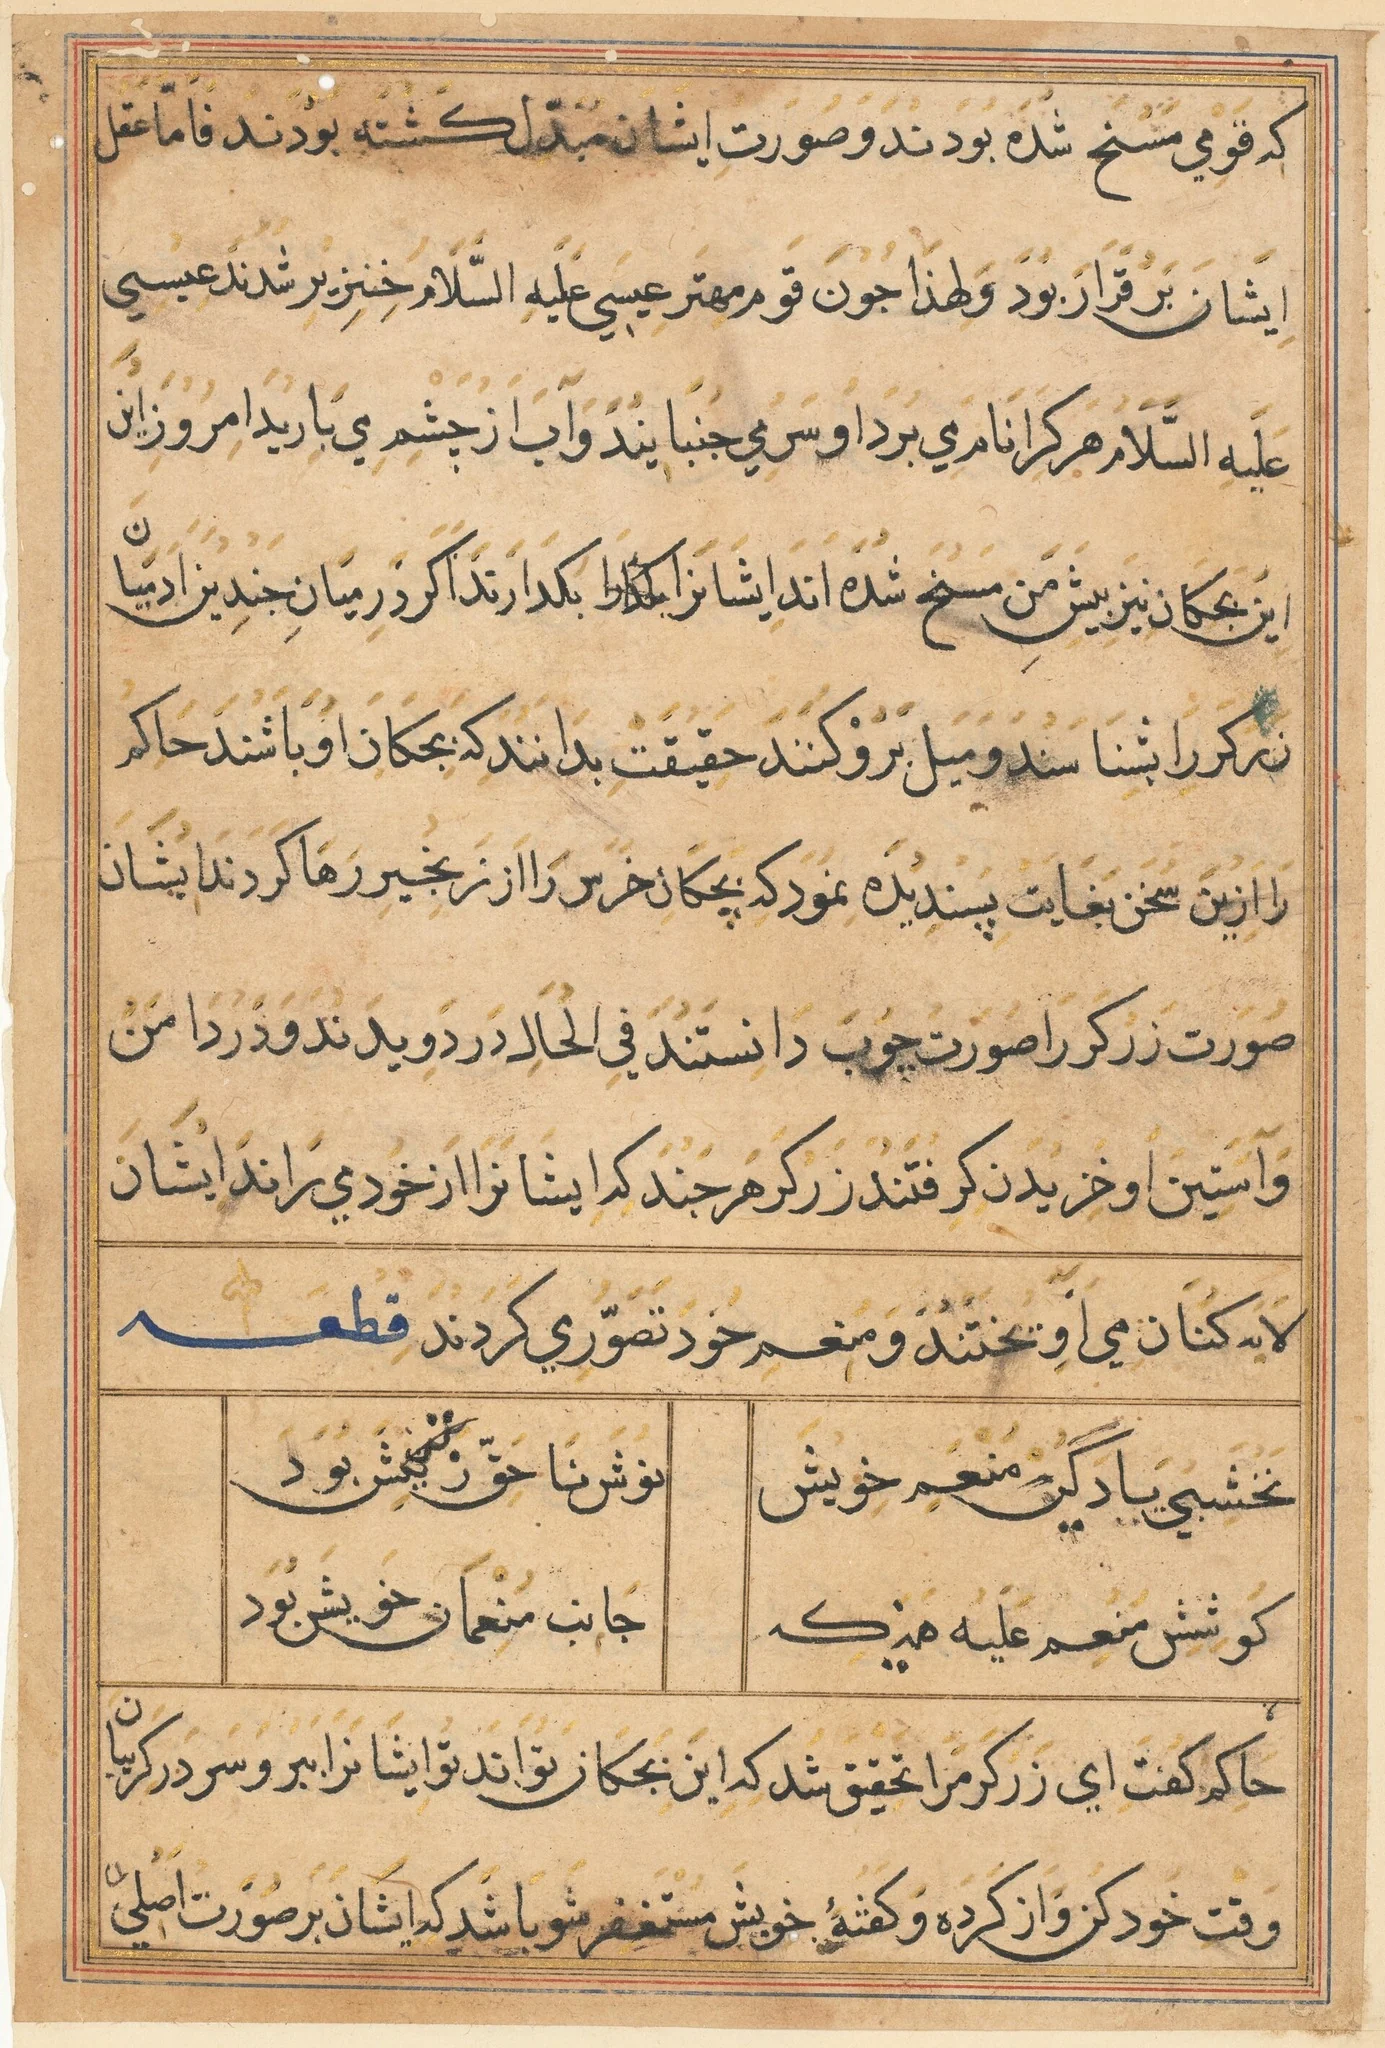 که قومي مسخ شده بودند و صورت ایشان مبدّل کشته بودند فامّا عقل
ایشان برقرار بود ولهذا جون قوم مهتر عیسي علیه السّلام خنزیر شدند عیسي
علیه السّلام هرکرا نام مي برد او سر مي جنبایند و آب از چشم مي بارید امروز این
این بجکان نیز بیش من مسخ شده اند ایشانرا بکدارند اکر در میان جندین ادمیّان
زرکر را بشناسند و میل برو کنند حقیقت بدانند که بجکان او باشند حاکم
را ازین سخن بغایت پسندیده نمود که بچکان خرس را از زنجیر رها کردند ایشان
صورت زرکر را صورت چوب دانستند في الحال در دویدند و در دامن
و آستین او خزیدن کرفتند زرکر هر جند که ایشانرا از خود مي راند ایشان
لابه کنان مي آویختند و منعم خود تصوّري کردند قطعه
نخشبي یاد گیر منعم خویش نوش ناحقّ ز نیش بود
کوشش منعم علیه هنریک جانب منعمان خویش بود
حاکم کفت اي زرکر مرا تحقیق شد که این بجکان تواند تو ایشانرا ببر و سر در کریبان
وقت خود کن و از کرده و کفتهٔ خویش مستغفر شو باشد که ایشان بر صورت اصلي